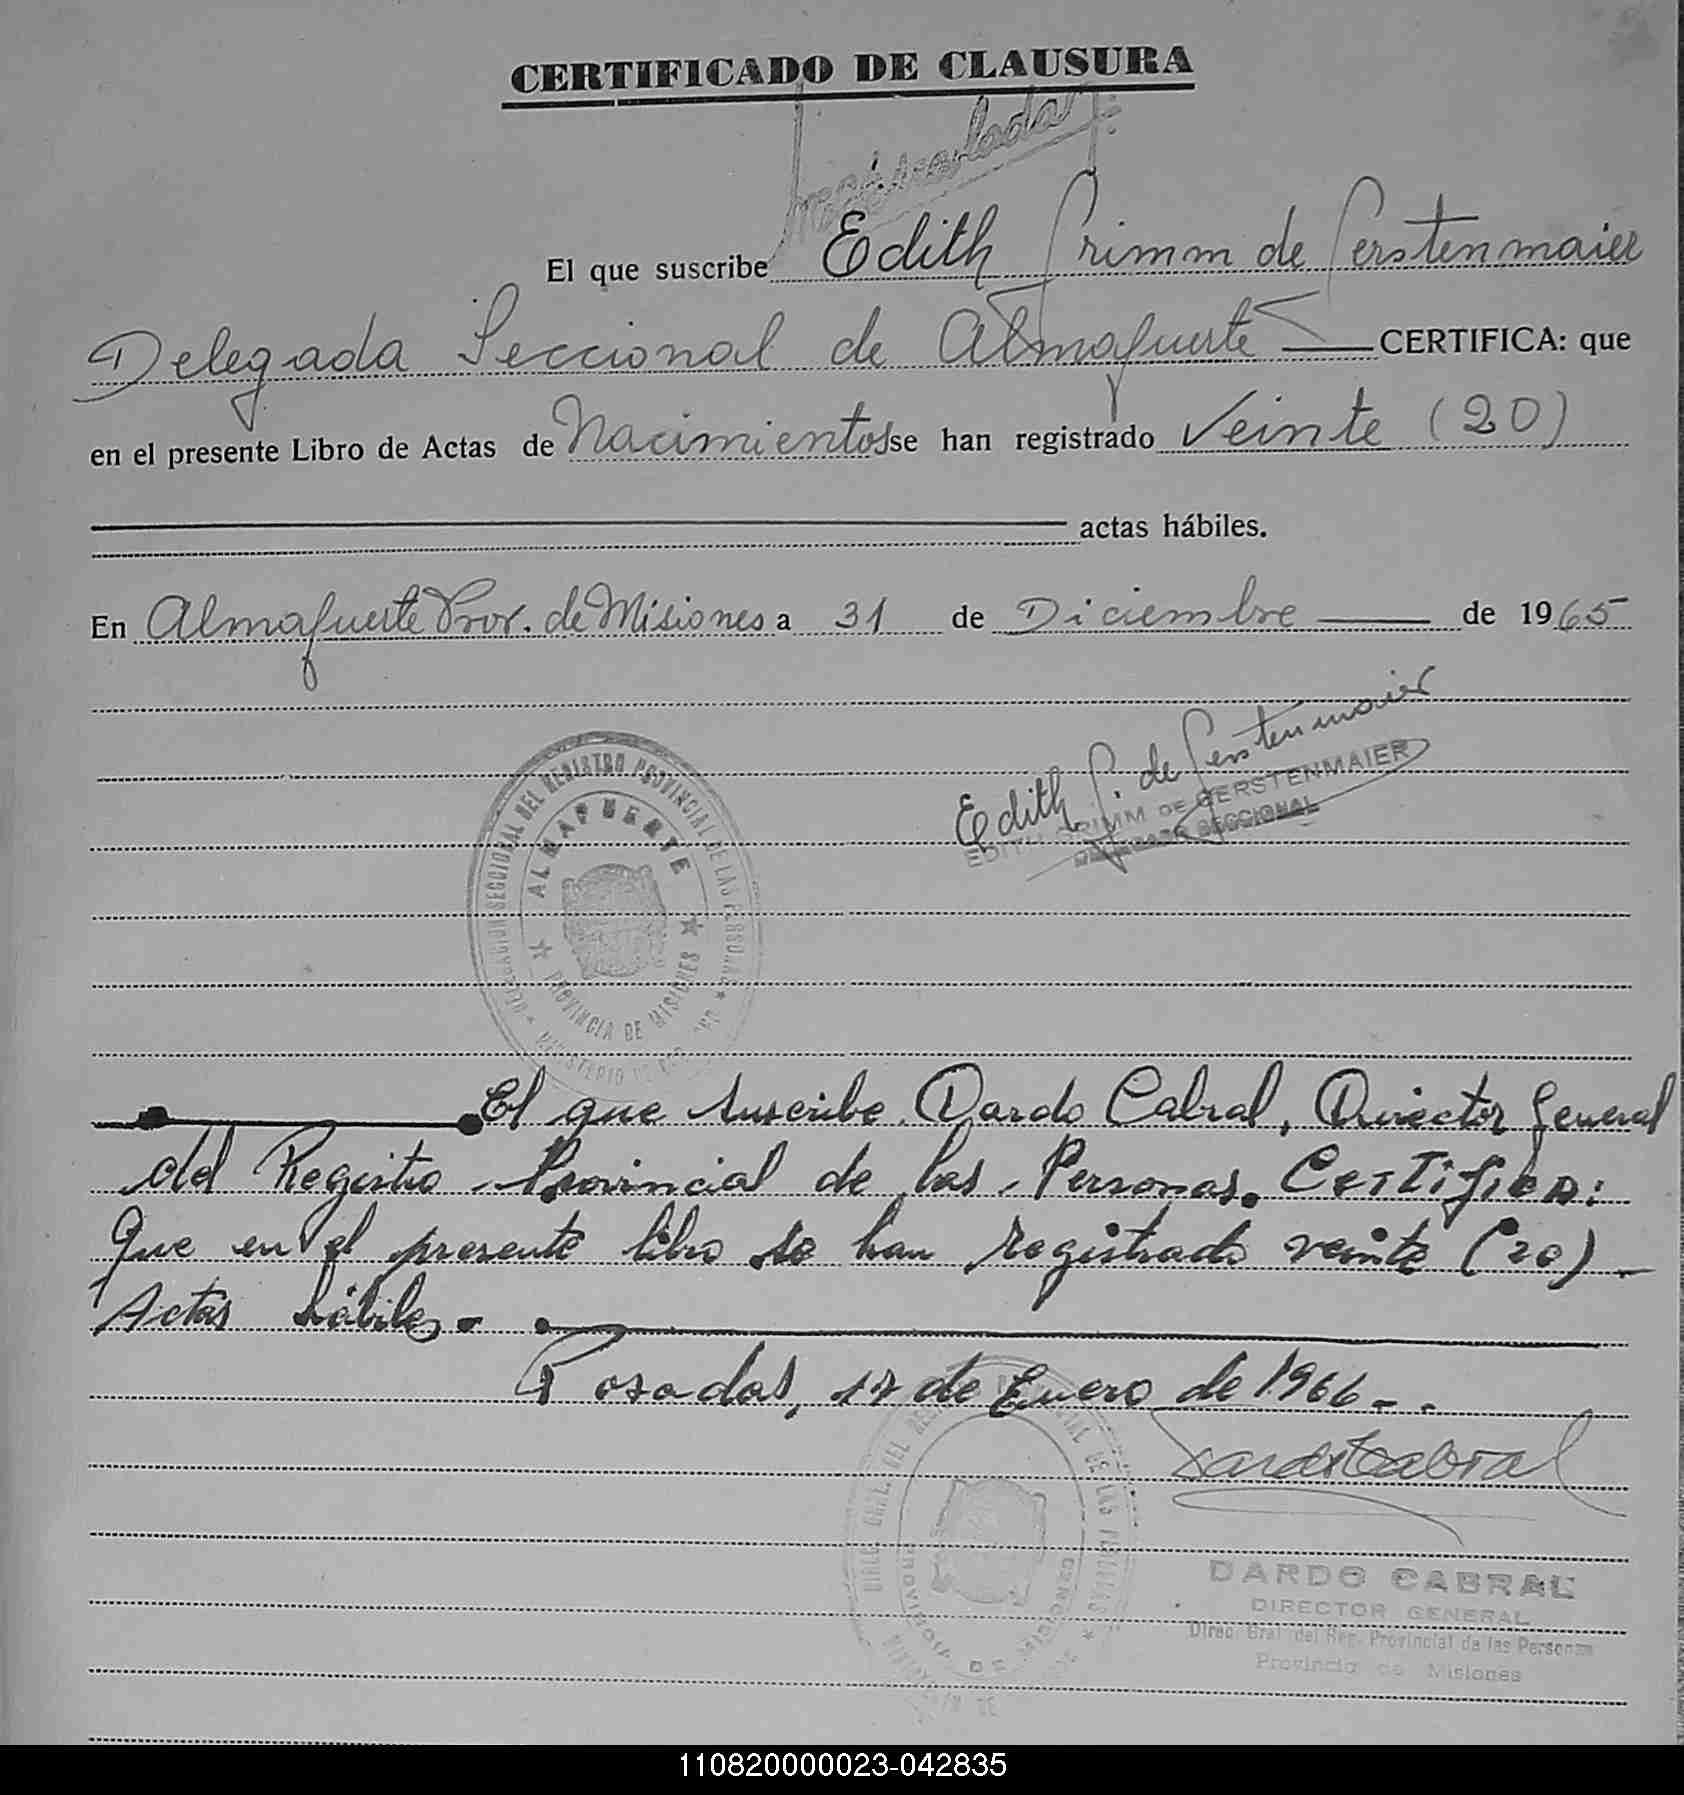 CERTIFICADO DE CLAUSURA
El que suscribe Edith Grimm de Gerstenmaier
Delegada Seccional de Almafuerte CERTIFICA: que
en el presente Libro de Actas de Nacimientos se han registrado Veinte (20)
actas hábiles.
En Almafuerte Prov. de Misiones a 31 de Diciembre de 1965
Edith G. de Gerstenmaier
EDITH GRIMM DE GERSTENMAIER
DELEGADA SECCIONAL
DELEGACION SECCIONAL DEL REGISTRO PROVINCIAL DE LAS PERSONAS
ALMAFUERTE
PROVINCIA DE MISIONES
El que suscribe Dardo Cabral, Director General
del Registro Provincial de las Personas. Certifica:
Que en el presente libro se han registrado veinte (20)
Actas hábiles.
Posadas, 17 de Enero de 1966 -.
Dardo Cabral
DARDO CABRAL
DIRECTOR GENERAL
Direc. Gral. del Reg. Provincial de las Personas
Provincia de Misiones
DIREC. GRAL. DEL REG. PROVINCIAL DE LAS PERSONAS
PROVINCIA DE MISIONES
110820000023-042835